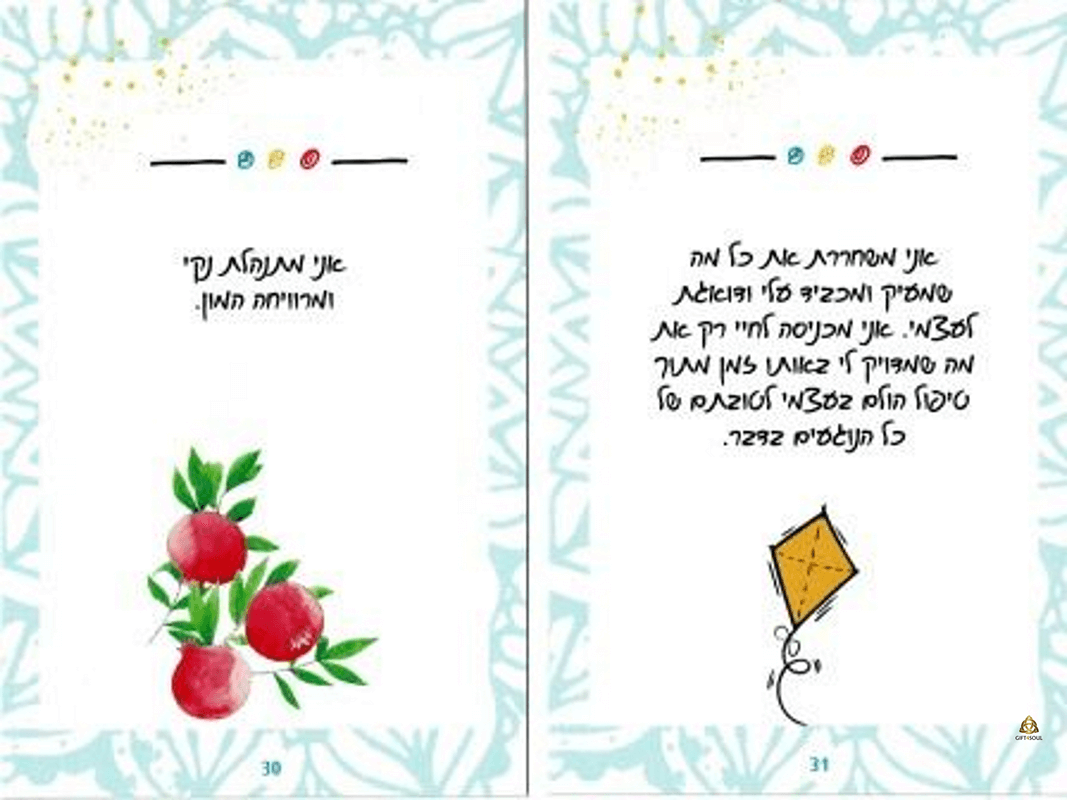 אני מתנהלת נקי
ומרוויחה המון.
30
אני משחררת את כל מה
שמעיק ומכביד עלי ודואגת
לעצמי. אני מכניסה לחיי רק את
מה שמדויק לי באותו זמן מתוך
טיפול הולם בעצמי לטובתם של
כל הנוגעים בדבר.
31
GIFT4SOUL